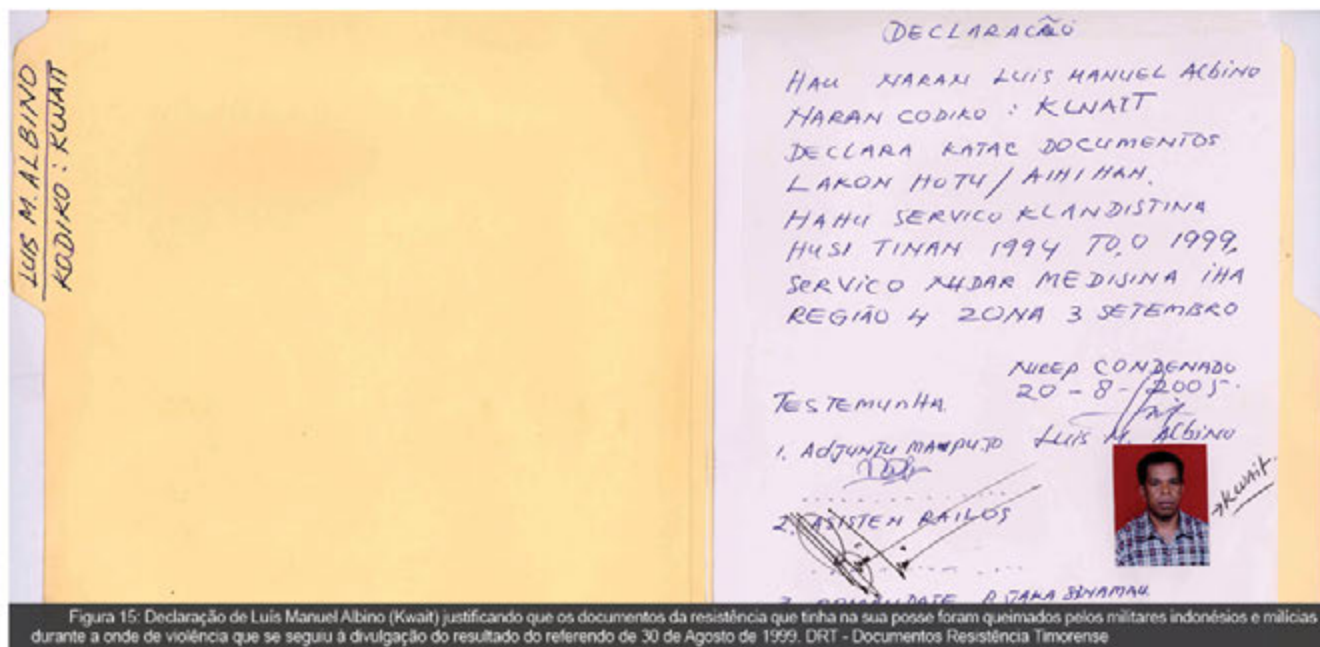 LUIS M. ALBINO
KODIKO : KUWAIT
DECLARACÃO
HAU NARAN LUIS MANUEL AlbiNO
NARAN CODIKO : KUWAIT
DECLARA KATAC DOCUMENTOS
LAKON HOTU / AIHI HAN.
HAHU SERVICO KLANDISTINA
HUSI TINAN 1994 TO,O 1999,
SERVICO NUDAR MEDISINA IHA
REGIÃO 4 ZONA 3 SETEMBRO
CONDENADO
20-8-2005.
TESTEMUNHA
Luis M. Albino
1. ADJUNTU
2. ASISTEN RAILOS
→Kwait.
3.
Figura 15: Declaração de Luís Manuel Albino (Kwait) justificando que os documentos da resistência que tinha na sua posse foram queimados pelos militares indonésios e milícias
durante a onde de violência que se seguiu à divulgação do resultado do referendo de 30 de Agosto de 1999. DRT - Documentos Resistência Timorense